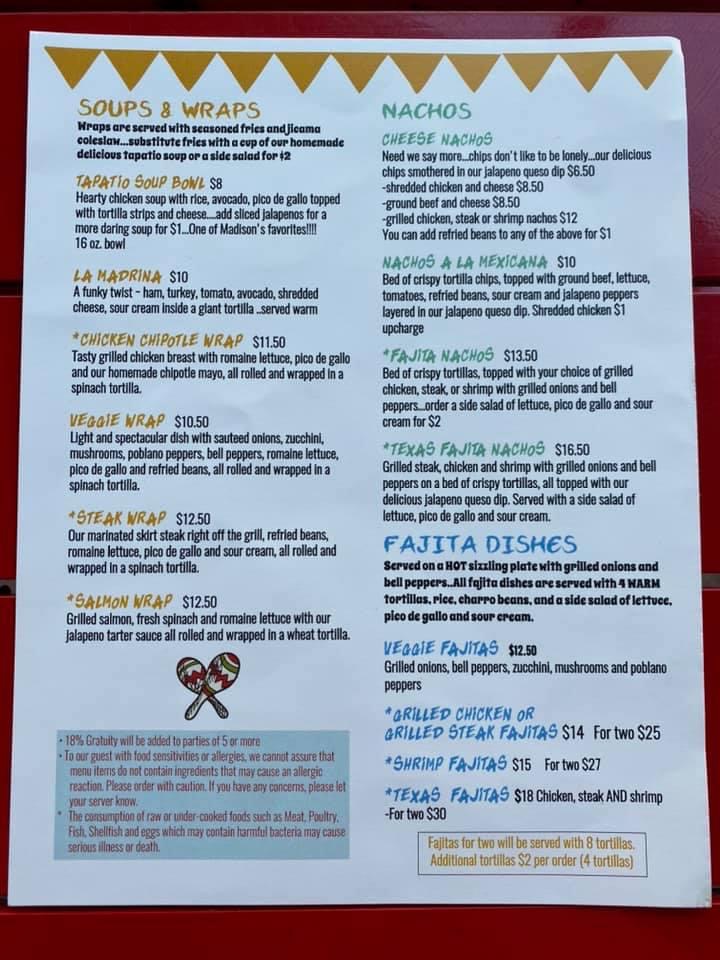 SOUPS & WRAPS
Wraps are served with seasoned fries and jicama
coleslaw...substitute fries with a cup of our homemade
delicious tapatio soup or a side salad for $2
TAPATIO SOUP BOWL $8
Hearty chicken soup with rice, avocado, pico de gallo topped
with tortilla strips and cheese....add sliced jalapenos for a
more daring soup for $1...One of Madison's favorites!!!!
16 oz. bowl
LA MADRINA $10
A funky twist - ham, turkey, tomato, avocado, shredded
cheese, sour cream inside a giant tortilla ..served warm
*CHICKEN CHIPOTLE WRAP $11.50
Tasty grilled chicken breast with romaine lettuce, pico de gallo
and our homemade chipotle mayo, all rolled and wrapped in a
spinach tortilla.
VEGGIE WRAP $10.50
Light and spectacular dish with sauteed onions, zucchini,
mushrooms, poblano peppers, bell peppers, romaine lettuce,
pico de gallo and refried beans, all rolled and wrapped in a
spinach tortilla.
*STEAK WRAP $12.50
Our marinated skirt steak right off the grill, refried beans,
romaine lettuce, pico de gallo and sour cream, all rolled and
wrapped in a spinach tortilla.
*SALMON WRAP $12.50
Grilled salmon, fresh spinach and romaine lettuce with our
jalapeno tarter sauce all rolled and wrapped in a wheat tortilla.
• 18% Gratuity will be added to parties of 5 or more
• To our guest with food sensitivities or allergies, we cannot assure that
menu items do not contain ingredients that may cause an allergic
reaction. Please order with caution. If you have any concerns, please let
your server know.
* The consumption of raw or under-cooked foods such as Meat, Poultry,
Fish, Shellfish and eggs which may contain harmful bacteria may cause
serious illness or death.
NACHOS
CHEESE NACHOS
Need we say more...chips don't like to be lonely...our delicious
chips smothered in our jalapeno queso dip $6.50
-shredded chicken and cheese $8.50
-ground beef and cheese $8.50
-grilled chicken, steak or shrimp nachos $12
You can add refried beans to any of the above for $1
NACHOS A LA MEXICANA $10
Bed of crispy tortilla chips, topped with ground beef, lettuce,
tomatoes, refried beans, sour cream and jalapeno peppers
layered in our jalapeno queso dip. Shredded chicken $1
upcharge
*FAJITA NACHOS $13.50
Bed of crispy tortillas, topped with your choice of grilled
chicken, steak, or shrimp with grilled onions and bell
peppers...order a side salad of lettuce, pico de gallo and sour
cream for $2
*TEXAS FAJITA NACHOS $16.50
Grilled steak, chicken and shrimp with grilled onions and bell
peppers on a bed of crispy tortillas, all topped with our
delicious jalapeno queso dip. Served with a side salad of
lettuce, pico de gallo and sour cream.
FAJITA DISHES
Served on a HOT sizzling plate with grilled onions and
bell peppers..All fajita dishes are served with 4 WARM
tortillas, rice, charro beans, and a side salad of lettuce,
pico de gallo and sour cream.
VEGGIE FAJITAS $12.50
Grilled onions, bell peppers, zucchini, mushrooms and poblano
peppers
*GRILLED CHICKEN OR
GRILLED STEAK FAJITAS $14 For two $25
*SHRIMP FAJITAS $15 For two $27
*TEXAS FAJITAS $18 Chicken, steak AND shrimp
-For two $30
Fajitas for two will be served with 8 tortillas.
Additional tortillas $2 per order (4 tortillas)